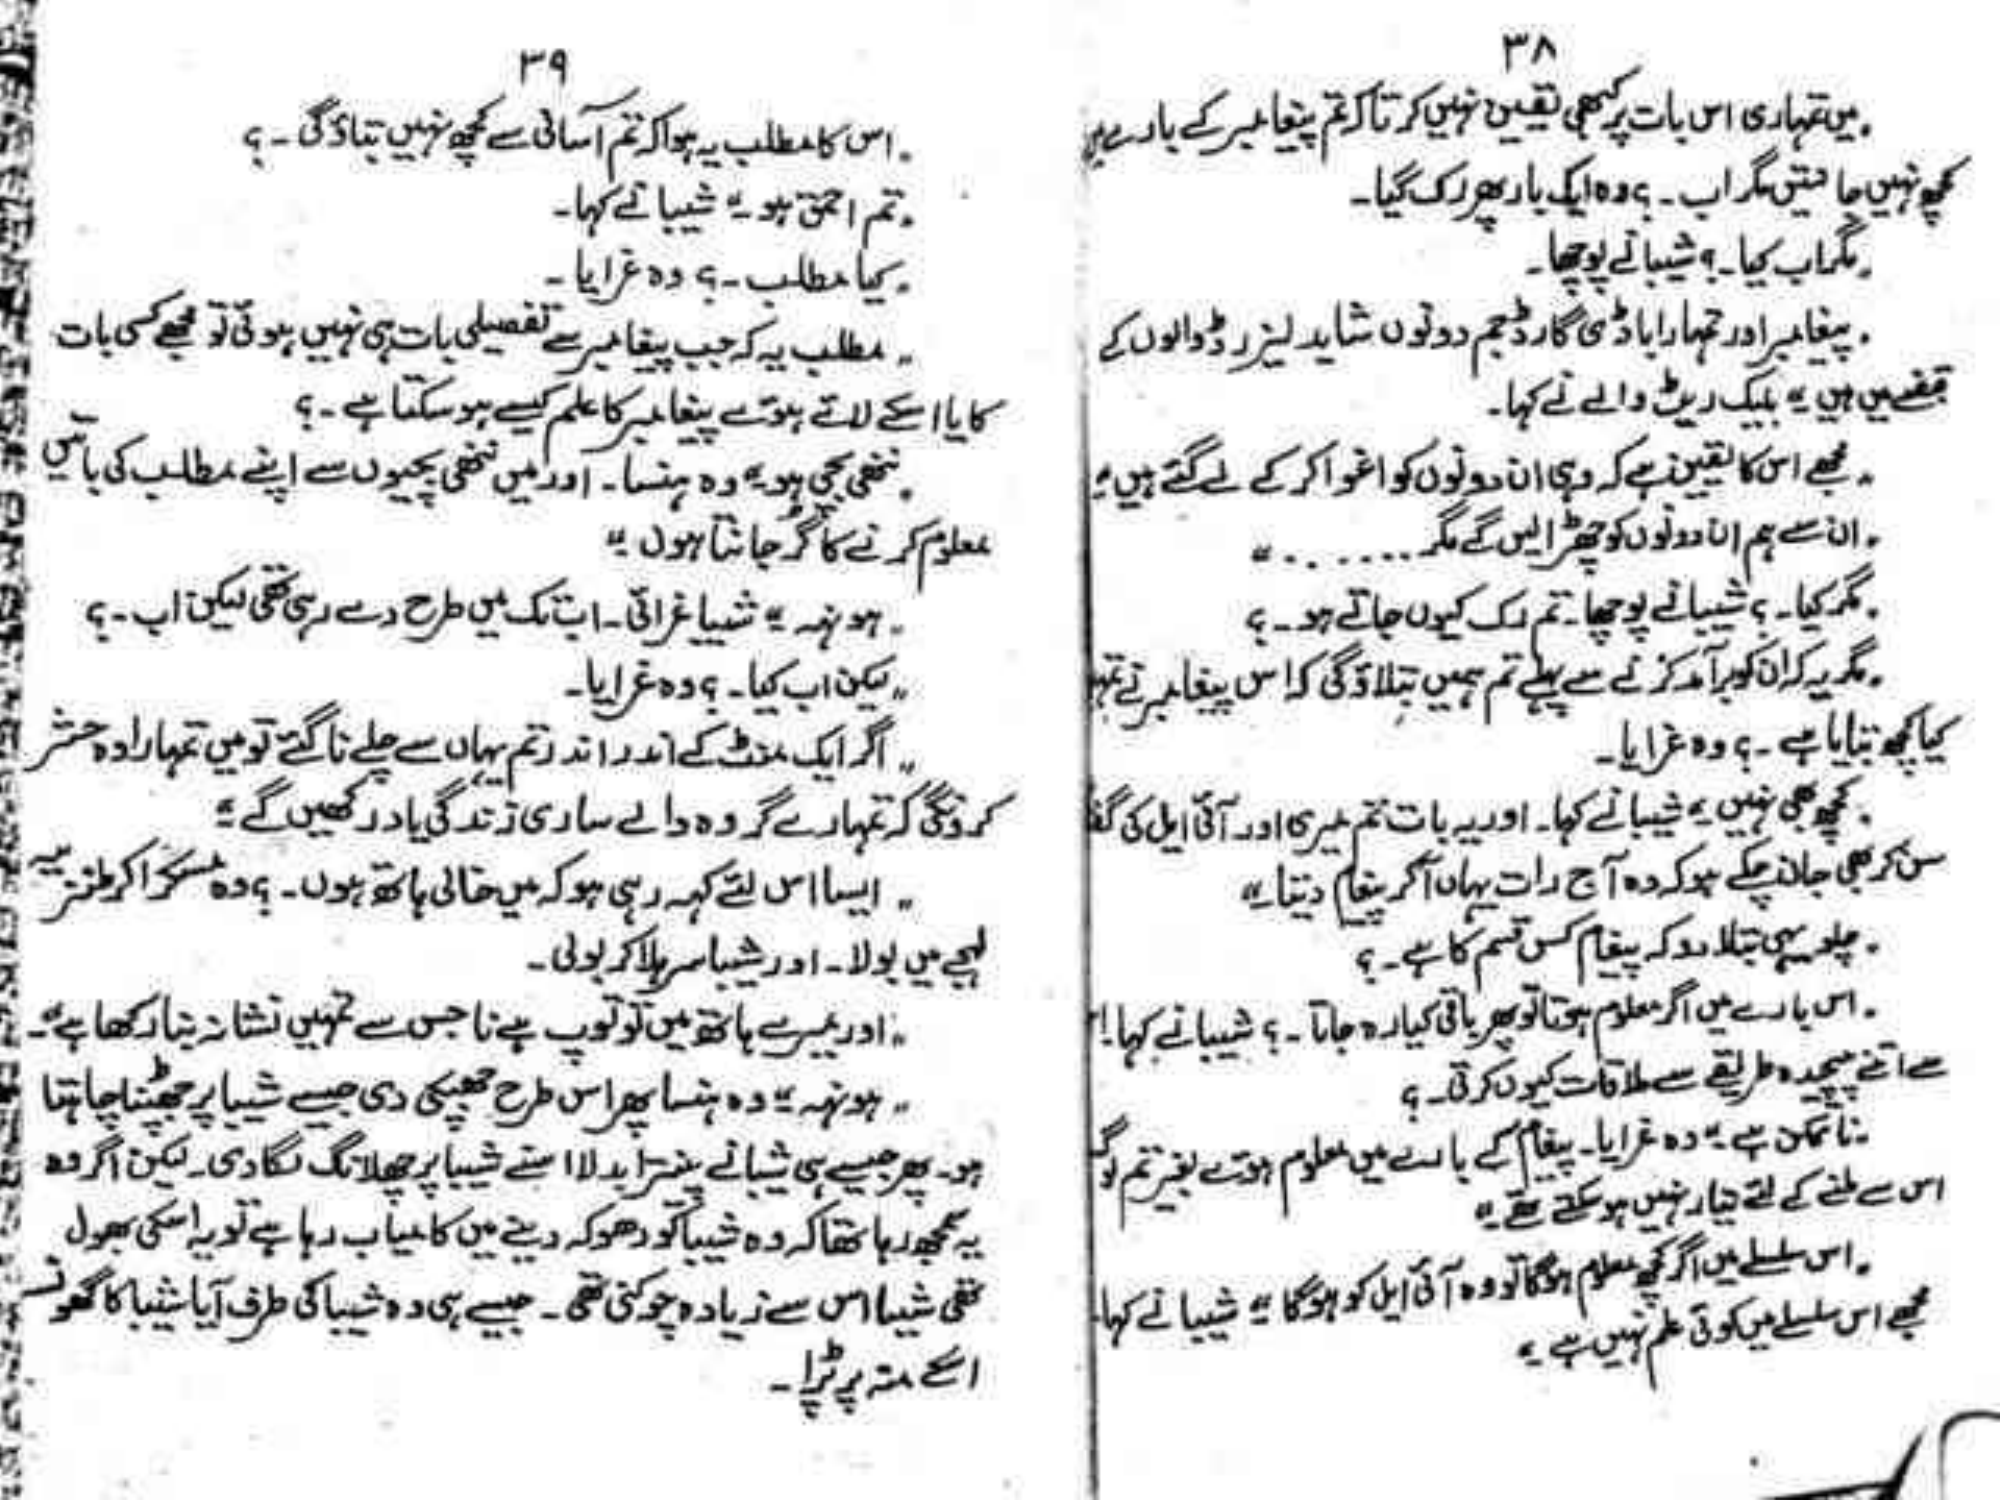 ۳۸
„میں تمہاری اس بات پر کبھی یقین نہیں کرتا کہ تم پیغامبر کے بارے میں
کچھ نہیں جانتیں مگر اب ۔ ؟ وہ ایک بار پھر رک گیا۔
„مگر اب کیا ۔ ؟ شیبا نے پوچھا۔
„پیغامبر اور تمہارا باڈی گارڈ جم دونوں شاید لیزر ڈ والوں کے
قبضے میں ہیں“ بلیک ریٹ والے نے کہا۔
„مجھے اس کا یقین ہے کہ وہی ان دونوں کو اغوا کر کے لے گئے ہیں“
„ان سے ہم ان دونوں کو چھڑا لیں گے مگر ........“
„مگر کیا ۔ ؟ شیبا نے پوچھا۔ تم رک کیوں جاتے ہو ۔ ؟
„مگر یہ کہ ان کو برآمد کرنے سے پہلے تم ہمیں بتلاؤ گی کہ اس پیغامبر نے
کیا کچھ بتایا ہے ۔ ؟ وہ غرایا۔
„کچھ بھی نہیں“ شیبا نے کہا۔ اور یہ بات تم میری اور آئی ایل کی
سن کر بھی جان چکے ہو کہ وہ آج رات یہاں آ کر پیغام دیتا“
„چلو یہی بتلا دو کہ پیغام کس قسم کا ہے ۔ ؟
„اس بارے میں اگر معلوم ہوتا تو پھر باقی کیا رہ جاتا ۔ ؟ شیبا نے کہا۔
سے اتنے پیچیدہ طریقے سے ملاقات کیوں کرتی ۔ ؟
„ناممکن ہے“ وہ غرایا۔ پیغام کے بارے میں معلوم ہوئے بغیر تم
اس سے ملنے کے لئے تیار نہیں ہو سکتے تھے“
„اس سلسلے میں اگر کچھ معلوم ہوگا تو وہ آئی ایل کو ہوگا“ شیبا نے کہا۔
مجھے اس سلسلے میں کوئی علم نہیں ہے“
۳۹
„اس کا مطلب یہ ہوا کہ تم آسانی سے کچھ نہیں بتاؤ گی ۔ ؟
„تم احمق ہو“ شیبا نے کہا۔
„کیا مطلب ۔ ؟ وہ غرایا ۔
„مطلب یہ کہ جب پیغامبر سے تفصیلی بات ہی نہیں ہوئی تو مجھے کسی بات
کا یا اسکے لائے ہوئے پیغامبر کا علم کیسے ہو سکتا ہے ۔ ؟
„ننھی بچی ہو“ وہ ہنسا۔ اور میں ننھی بچیوں سے اپنے مطلب کی باتیں
معلوم کرنے کا گُر جانتا ہوں“
„ہونہہ“ شیبا غرائی۔ اب تک میں طرح دے رہی تھی لیکن اب ۔ ؟
„لیکن اب کیا ۔ ؟ وہ غرایا۔
„اگر ایک منٹ کے اندر اندر تم یہاں سے چلے نا گئے تو میں تمہارا وہ حشر
کرونگی کہ تمہارے گروہ والے ساری زندگی یاد رکھیں گے“
„ایسا اس لئے کہہ رہی ہو کہ میں خالی ہاتھ ہوں ۔ ؟ وہ مسکرا کر طنزیہ
لہجے میں بولا۔ اور شیبا سر ہلا کر بولی۔
„اور میرے ہاتھ میں تو توپ ہے نا جس سے تمہیں نشانہ بنا رکھا ہے“۔
„ہونہہ“ وہ ہنسا پھر اس طرح جھپکی دی جیسے شیبا پر جھپٹنا چاہتا
ہو۔ پھر جیسے ہی شیبا نے پینترا بدلا اسنے شیبا پر چھلانگ لگا دی۔ لیکن اگر وہ
یہ سمجھ رہا تھا کہ وہ شیبا کو دھوکہ دینے میں کامیاب رہا ہے تو یہ اسکی بھول
تھی شیبا اس سے زیادہ چوکنی تھی ۔ جیسے ہی وہ شیبا کی طرف آیا شیبا کا گھونسہ
اسکے منہ پر پڑا ۔